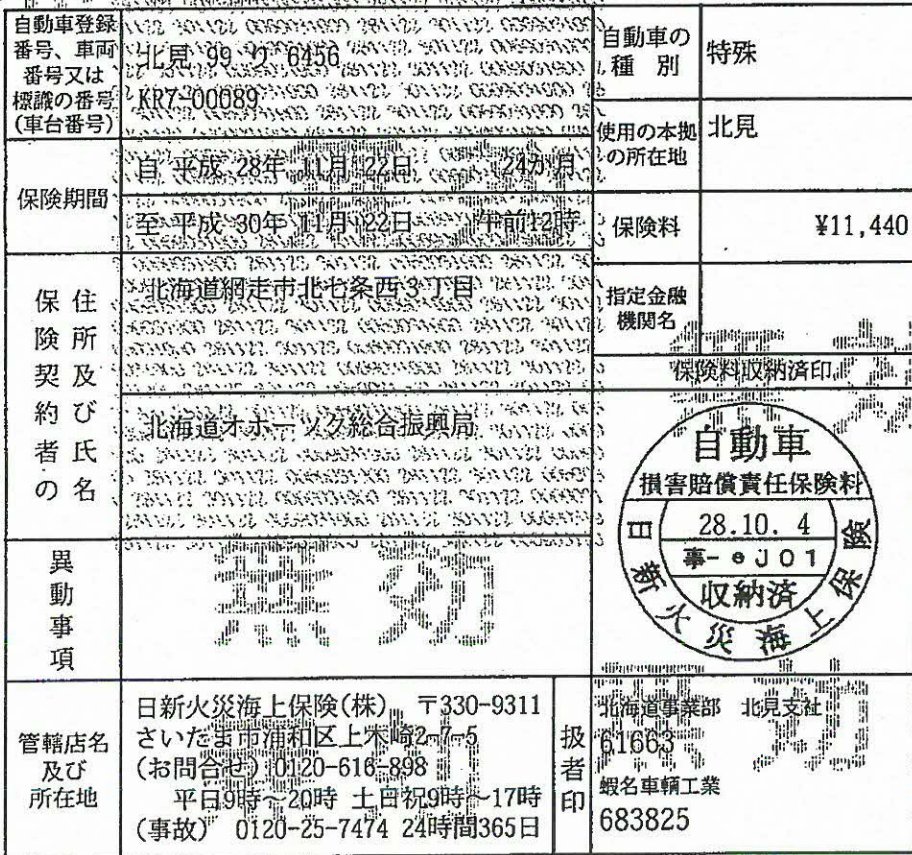 自動車登録
番号、車両
番号又は
標識の番号
(車台番号)
北見 99 り 6456
KR7-00089
自動車の
種別
特殊
使用の本拠
の所在地
北見
保険期間
自 平成 28年 11月 22日 24か月
至 平成 30年 11月 22日 午前12時
保険料
¥11,440
保険契約者の
住所及び氏名
北海道網走市北七条西3丁目
北海道オホーツク総合振興局
指定金融
機関名
保険料収納済印
自動車
損害賠償責任保険料
28.10. 4
事-eJ01
収納済
日新火災海上保険
異動事項
無効
管轄店名
及び
所在地
日新火災海上保険(株) 〒330-9311
さいたま市浦和区上木崎2-7-5
(お問合せ) 0120-616-898
平日9時～20時 土日祝9時～17時
(事故) 0120-25-7474 24時間365日
扱者印
北海道事業部 北見支社
61663
蝦名車輌工業
683825
無効